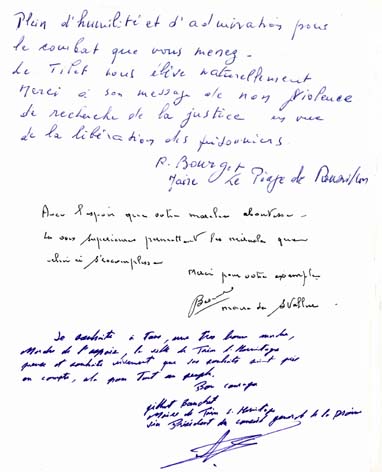 Plein d'humilité et d'admiration pour
le combat que vous menez -
Le Tibet nous élève naturellement
Merci à son message de non violence
de recherche de la justice en vue
de la libération des prisonniers.
P. Bourgot
Maire Le Péage de Roussillon
Avec l'espoir que votre marche aboutisse -
La voie supérieure permettant les miracles que
celui-ci s'accomplisse
Merci pour votre exemple
maire de St Vallier
Je souhaite à Tous, une très bonne marche,
Marche de l'espoir, la ville de Tain l'Hermitage
pense et souhaite vivement que ses souhaits soient pris
en compte, et pour Tout un peuple.
Bon courage
Gilbert Bouchet
Maire de Tain l'Hermitage
Vice Président du conseil général de la Drôme